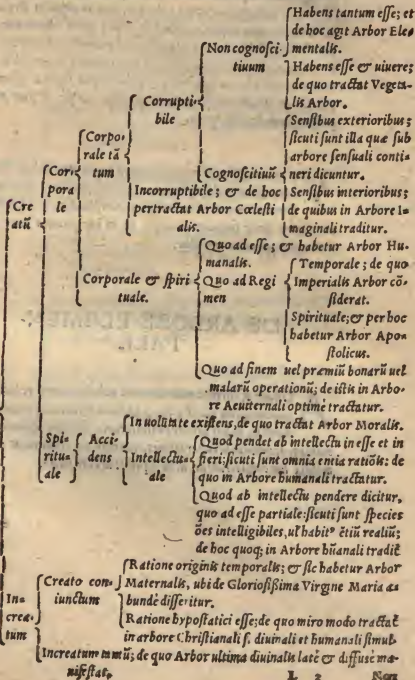 Habens tantum esse; et
de hoc agit Arbor Ele-
mentalis.
Non cognosci-
tiuum
Habens esse & uiuere;
de quo tractat Vegeta-
lis Arbor.
Corrupti-
bile
Sensibus exterioribus;
sicuti sunt illa quæ sub
arbore sensuali conti-
neri dicuntur.
Cognoscitiuũ
Sensibus interioribus;
de quibus in Arbore I-
maginali traditur.
Corpo-
rale tã
tum
Incorruptibile; & de hoc
pertractat Arbor Cœlesti
alis.
Cor-
pora
le
Cre
atũ
Quo ad esse; & habetur Arbor Hu-
manalis.
Corporale & spiri
tuale.
Quo ad Regi
men
Temporale; de quo
Imperialis Arbor cõ-
siderat.
Spirituale; & per hoc
habetur Arbor Apo-
stolicus.
Quo ad finem uel præmiũ bonarũ uel
malarũ operationũ; de istis in Arbo-
re Aeuiternali optime tractatur.
Spi-
ritu-
ale
Acci-
dens
In uolũtate existens, de quo tractat Arbor Moralis.
Intellectu-
ale
Quod pendet ab intellectu in esse et in
fieri: sicuti sunt omnia entia ratiõis: de
quo in Arbore humanali tractatur.
Quod ab intellectu pendere dicitur,
quo ad esse partiale: sicuti sunt species
ões intelligibiles, ul' habitꝰ etiũ realiũ;
de hoc quoq; in Arbore hũanali tradit
In-
crea-
tum
Creato con-
iunctum
Ratione originis temporalis; & sic habetur Arbor
Maternalis, ubi de Gloriosissima Virgine Maria a-
bunde disseritur.
Ratione hypostatici esse; de quo miro modo tractat
in arbore Christianali s. diuinali et humanali simul.
Increatum tantũ; de quo Arbor ultima diuinalis late & diffuse ma-
nifestat.
L 2 Non